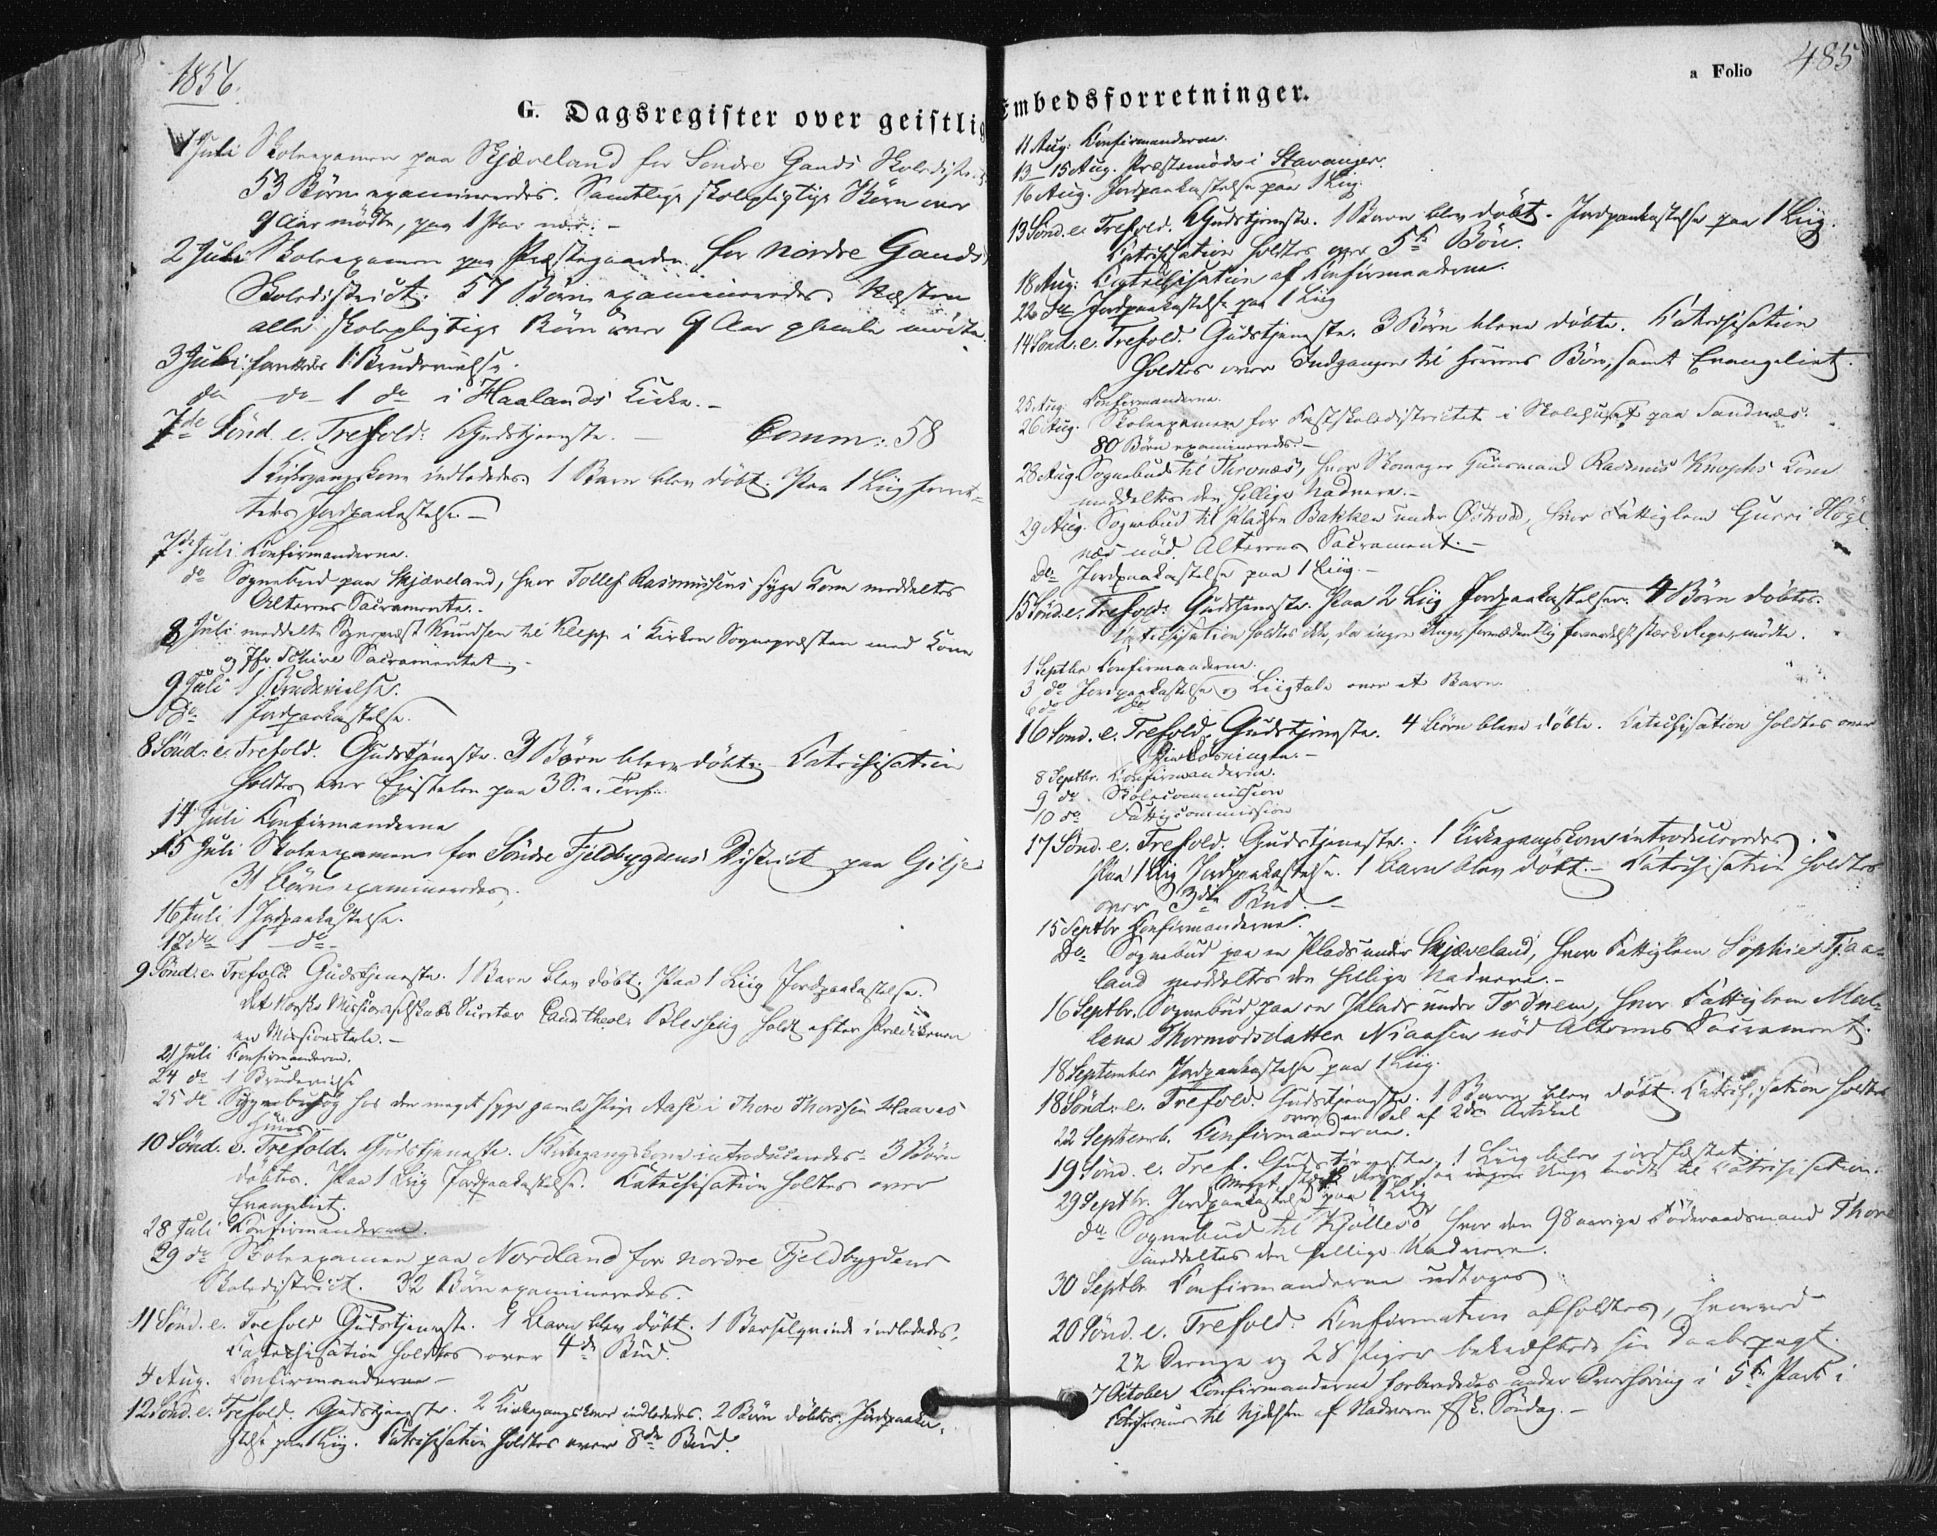 1856.
a Folio 485
G. Dagsregister over geistlig Embedsforretninger.
1 Juli Skoleexamen paa Skjæveland for Søndre Gands Skoledistr.
53 Børn examineredes. Samtlige skolepligtige Børn over
9 Aar mødte, paa 1 Par nær. -
2 Juli Skoleexamen paa Præstegaarden for Nordre Gands
Skoledistrict. 57 Børn examineredes. Næsten
alle skolepligtige Børn over 9 Aar gamle mødte.
3 Juli forrettedes 1 Brudevielse.
do do 1 do i Haalands Kirke. -
7de Sønd. e. Trefold: Gudstjeneste. - Comm: 58
1 Kirkegangskone indlededes. 1 Barn blev døbt. Paa 1 Liig forret-
tedes Jordpaakastelse. -
7de Juli Confirmanderne.
do Sognebud paa Skjæveland, hvor Tollef Rasmussens syge Kone meddeltes
Alterens Sacramente. -
8 Juli meddelte Sognepræst Knudsen til Klepp i Kirken Sognepræsten med Kone
og Jfr. Schive Sacramentet. -
9 Juli 1 Brudevielse.
do 1 Jordpaakastelse.
8 Sønd: e. Trefold. Gudstjeneste. 3 Børn bleve døbte. - Catechisation
holdtes over Epistelen paa 3 S. e. Tref.
14 Juli Confirmanderne
15 Juli Skoleexamen for Søndre Fjeldbygdens District paa Gilje
31 Børn examineredes.
16 Juli 1 Jordpaakastelse.
17 do 1 - do -
9 Sønd: e. Trefold Gudstjeneste. 1 Barn blev døbt. Paa 1 Liig Jordpaakastelse.
Det Norske Missionsselskabs Secretær Cand. theol. Blessing holdt efter Prædikenen
en Missionstale. -
21 Juli Confirmanderne.
24 do 1 Brudevielse
25 do Sygebesøg hos den meget syge gamle Pige Aase i Thore Thorsen Haaves
Huus. -
10 Sønd. e. Trefold. Gudstjeneste. Kirkegangskone introduceredes. 3 Børn
døbtes. Paa 1 Liig Jordpaakastelse. Catechisation holdtes over
Evangeliet.
28 Juli Confirmanderne.
29 do Skoleexamen paa Nordland for nordre Fjeldbygdens
Skoledistrict. 32 Børn examineredes.
11 Sønd. e. Trefold Gudstjeneste. 1 Barn blev døbt. 1 Barselqvinde indlededes.
Catechisation holdtes over 4de Bud.
4 Aug. Confirmanderne -
12 Sønd. e. Trefold. Gudstjeneste. 2 Kirkegangskoner indlededes. 2 Børn døbtes. Jordpaaka-
stelse paa 1 Liig. Catechisation holdtes over 8de Bud.
11 Aug: Confirmanderne.
13-15 Aug. Præstemøde i Stavanger.
16 Aug. Jordpaakastelse paa 1 Liig.
13 Sønd. e. Trefold. Gudstjeneste. 1 Barn blev døbt. Jordpaakastelse paa 1 Liig.
Catechisation holdtes over 5te Bøn.
18 Aug: Catechisation af Confirmanderne.
22 do Jordpaakastelse paa 1 Liig
14 Sønd: e. Trefold. Gudstjeneste. 3 Børn bleve døbte. Catechisation
holdtes over Indgangen til Herrens Bøn, samt Evangeliet.
25 Aug. Confirmanderne.
26 Aug. Skoleexamen for Fastskoledistrictet i Skolehuset paa Sandnæs.
80 Børn examineredes. -
28 Aug Sognebud til Thronæs, hvor Skomager Huusmand Rasmus Knophs Kone
meddeltes den hellige Nadvere. -
29 Aug. Sognebud til Pladsen Bakken under Østraad, hvor Fattiglem Gurri Høgl
næs nød Alterens Sacrament. -
Do Jordpaakastelse paa 1 Liig. -
15 Sønd. e. Trefold: Gudstjeneste. Paa 2 Liig Jordpaakastelser. 4 Børn døbtes.
Catechisation holdtes ikke, da ingen Unge, formedentlig formedelst stærk Regn, mødte.
1 Septbr Confirmanderne.
3 do Jordpaakastelse og Liigtale over et Barn
6 do do
16 Sønd. e. Trefold. Gudstjeneste. 4 Børn bleve døbte. Catechisation holdtes over
Gjenløsningen. -
8 Septbr. Confirmanderne.
9 do Skolecommission
10 do Fattigcommission
17 Sønd. e. Trefold. Gudstjeneste. 1 Kirkegangskone introduceredes.
Paa 1 Liig Jordpaakastelse. 1 Barn blev døbt. - Catechisation holdtes
over 3die Bud. -
15 Septbr Confirmanderne.
Do Sognebud paa en Plads under Skjæveland, hvor Fattiglem Sophie Tjaa-
land meddeltes den hellige Nadvere. -
16 Septbr. Sognebud paa en Plads under Tødnem, hvor Fattiglem Mal-
lena Thormodsdatter Niaasen nød Alterens Sacrament.
18 September Jordpaakastelse paa 1 Liig.
18 Sønd. e. Trefold. Gudstjeneste. 1 Barn blev døbt. Catechisation holdtes
over en Del af 2den Artikel
22 Septemb. Confirmanderne.
19 Sønd. e. Tref. Gudstjeneste. 1 Liig blev jordfæstet.
Meget stærk Regn, saa ingen Unge mødte til Catechisation.
29 Septbr. Jordpaakastelse paa 1 Liig
do Sognebud til Kjølleso, hvor den 98 aarige Føderaadsmand Thore
meddeltes den hellige Nadvere.
30 Septbr Confirmanderne udtoges
20 Sønd. e. Trefold. Confirmation afholdtes, hvorved
22 Drenge og 28 Piger bekræftede sin Daabspagt.
7 October Confirmanderne forberededes under Overhøring i 5te Part i
Catechismus til Nydelsen af Nadveren f. E. Søndag. -